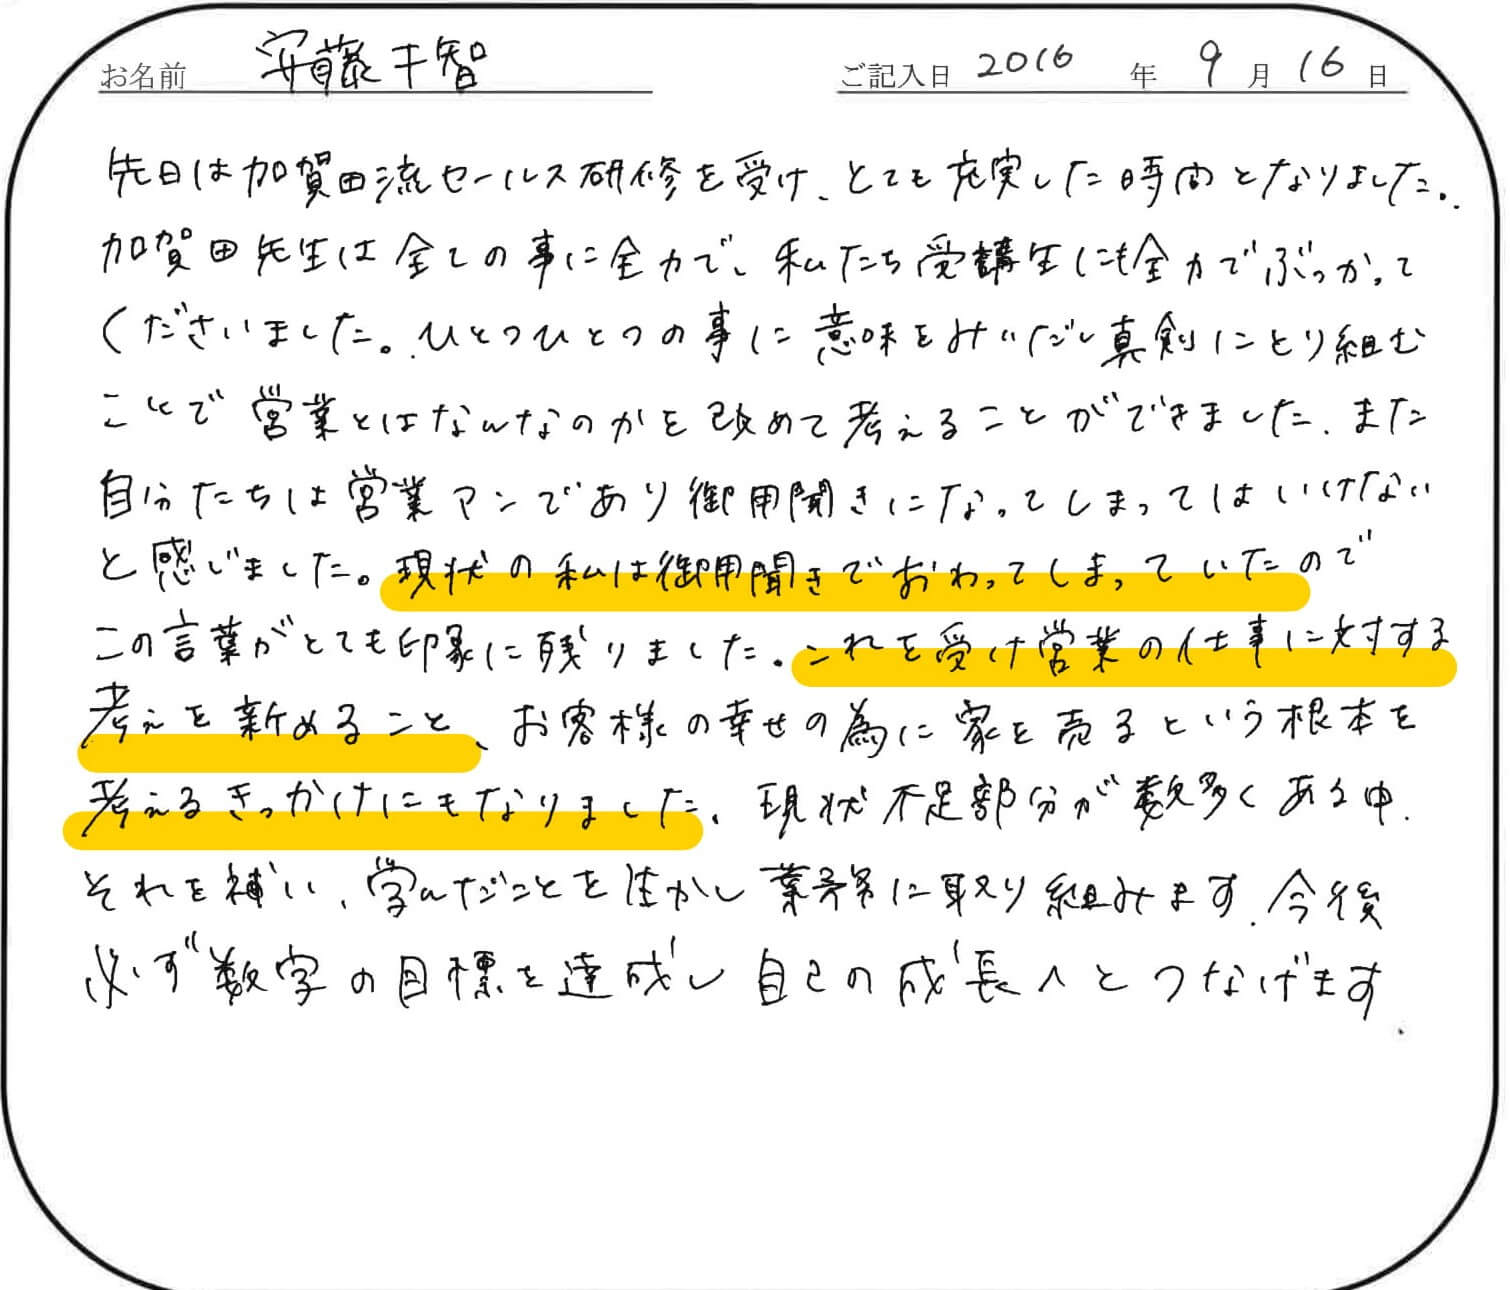 お名前 安藤千智 ご記入日 2016 年 9 月 16 日
先日は加賀田流セールス研修を受け、とても充実した時間となりました。
加賀田先生は全ての事に全力で、私たち受講生にも全力でぶつかって
くださいました。ひとつひとつの事に意味をみいだし真剣にとり組む
ことで営業とはなんなのかを改めて考えることができました。また
自分たちは営業マンであり御用聞きになってしまってはいけない
と感じました。現状の私は御用聞きでおわってしまっていたので
この言葉がとても印象に残りました。これを受け営業の仕事に対する
考えを新めること、お客様の幸せの為に家を売るという根本を
考えるきっかけにもなりました。現状不足部分が数多くある中、
それを補い、学んだことを生かし業務に取り組みます。今後
必ず数字の目標を達成し自己の成長へとつなげます。